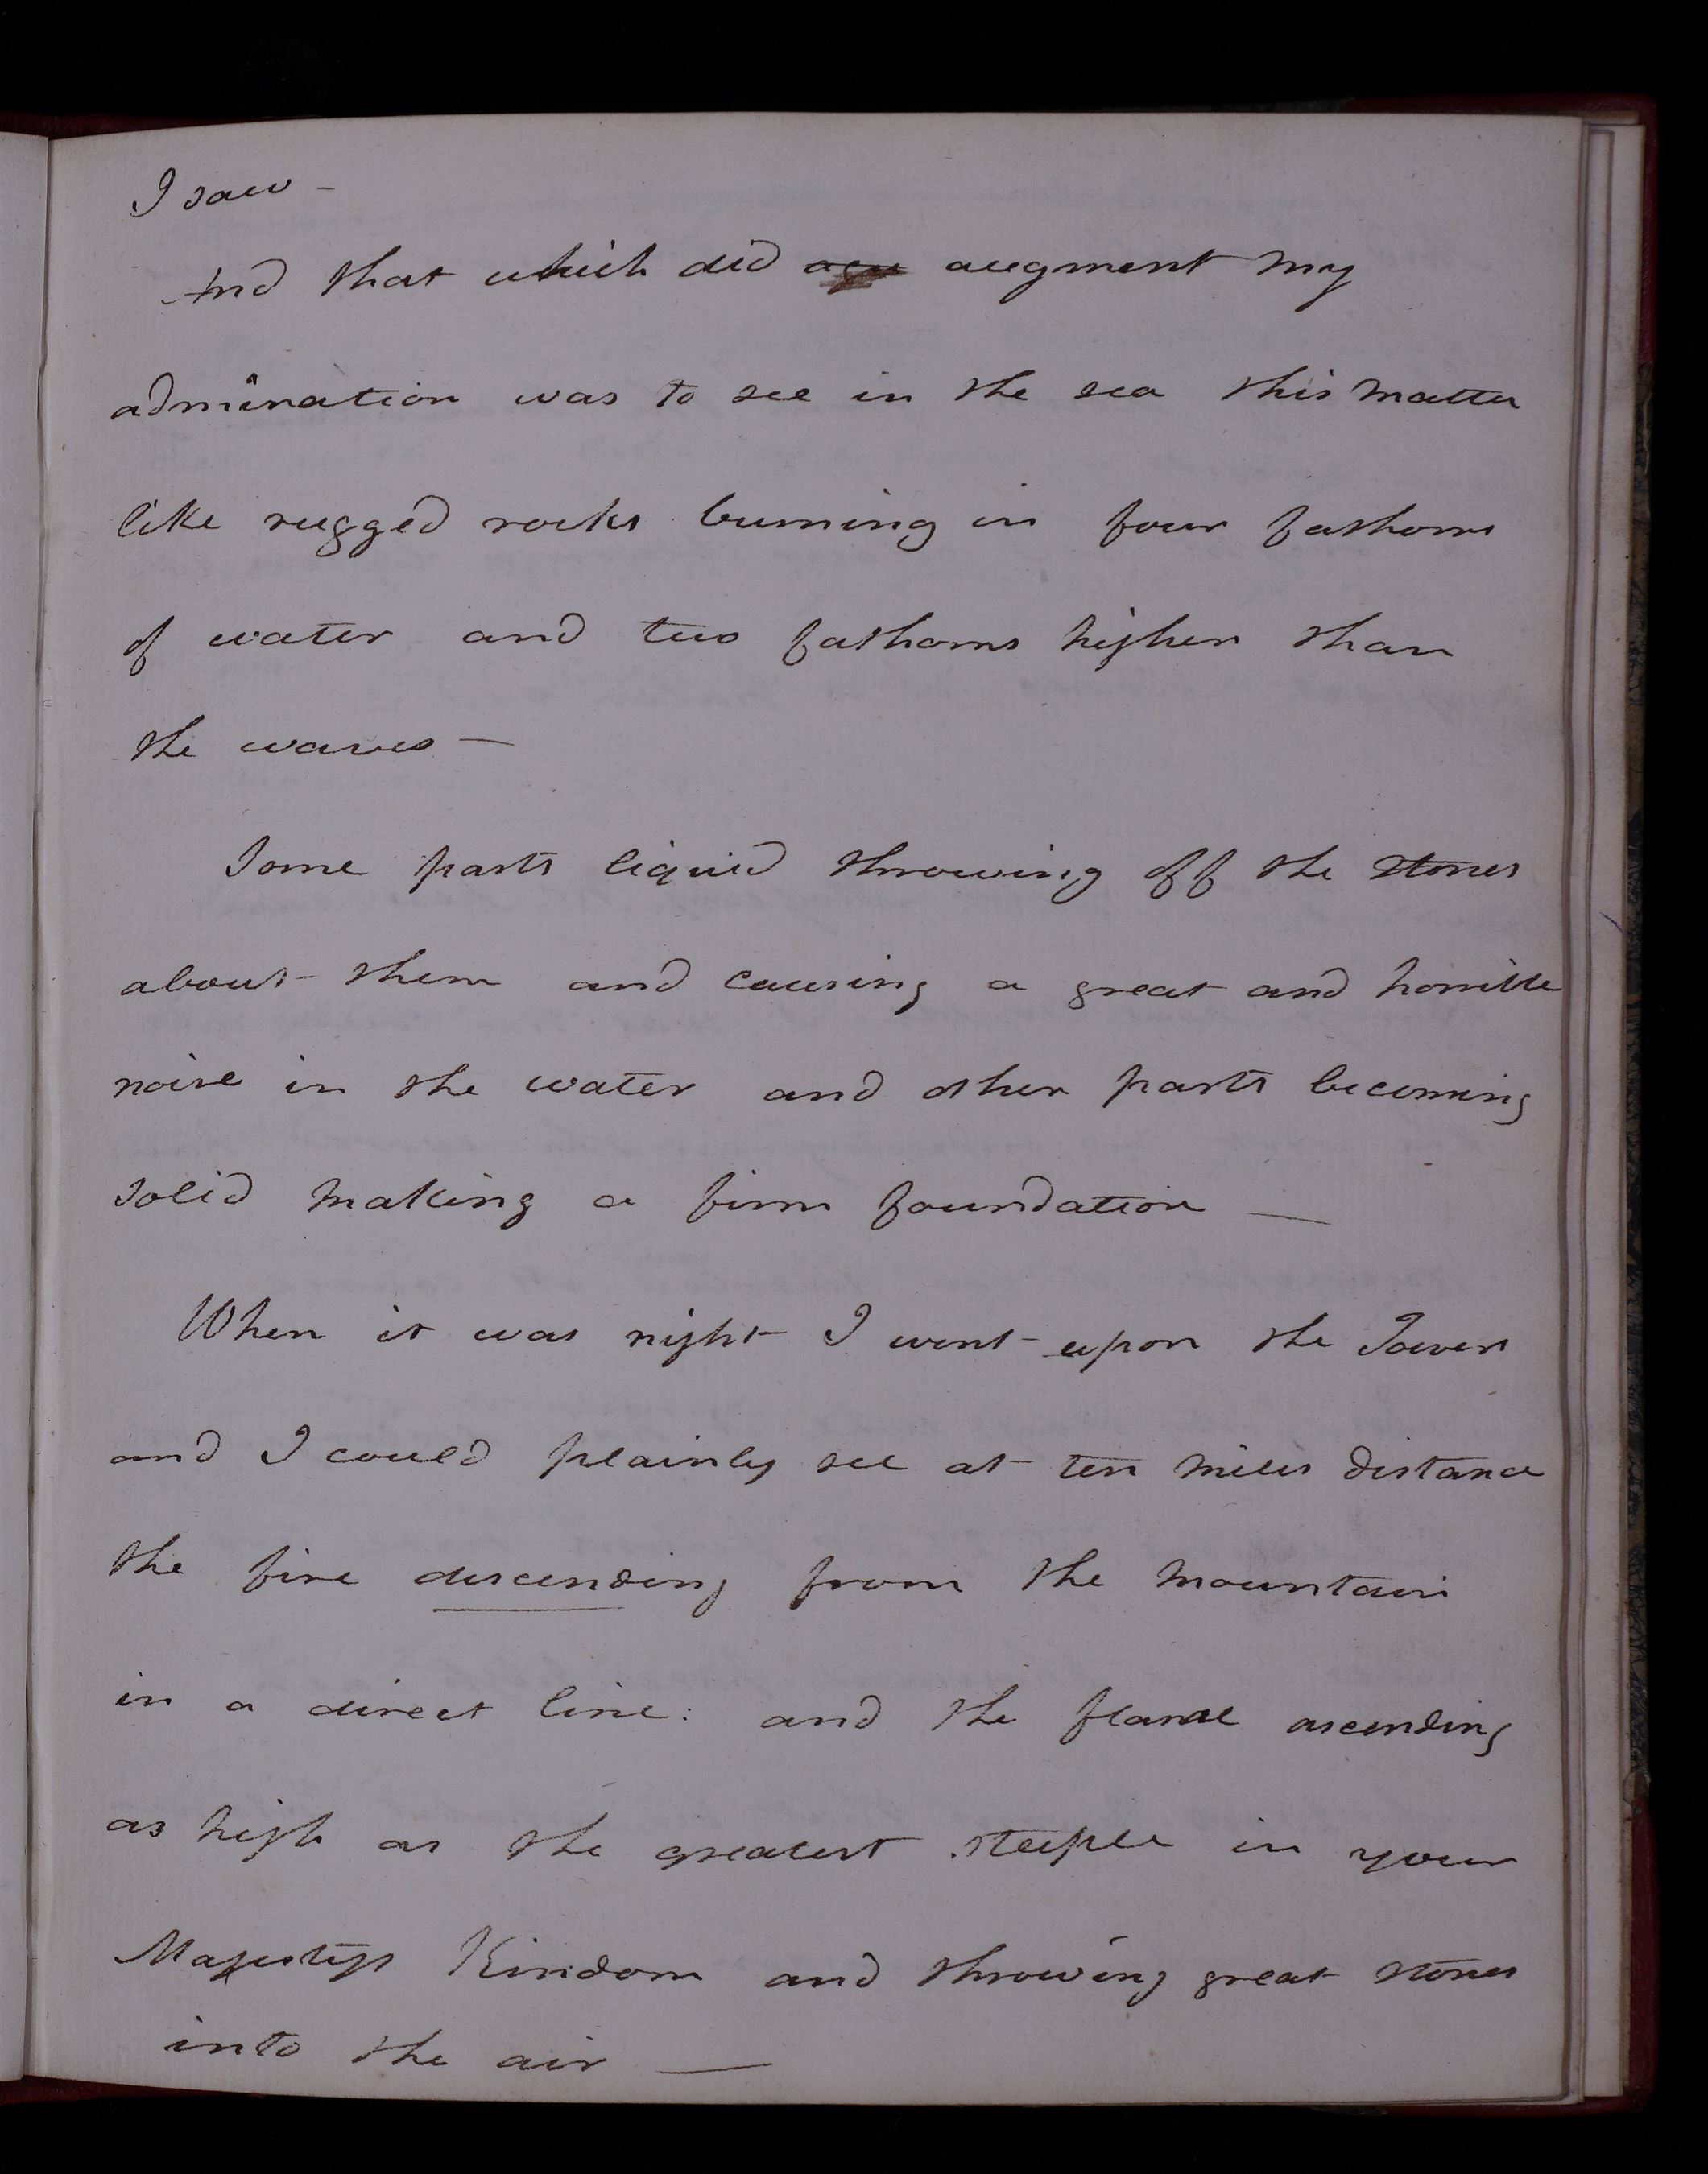 I saw -
And that which did agu augment my
admiration was to see in the sea this matter
like rugged rocks burning in four fathoms
of water and two fathoms higher than
the waves —
Some parts liquid throwing off the stones
about them and causing a great and horrible
noise in the water and other parts becoming
solid making a firm foundation —
When it was night I went upon the Towers
and I could plainly see at ten miles distance
the fire descending from the mountain
in a direct line: and the flame ascending
as high as the greatest steeple in your
Majestys Kindom and throwing great stones
into the air —